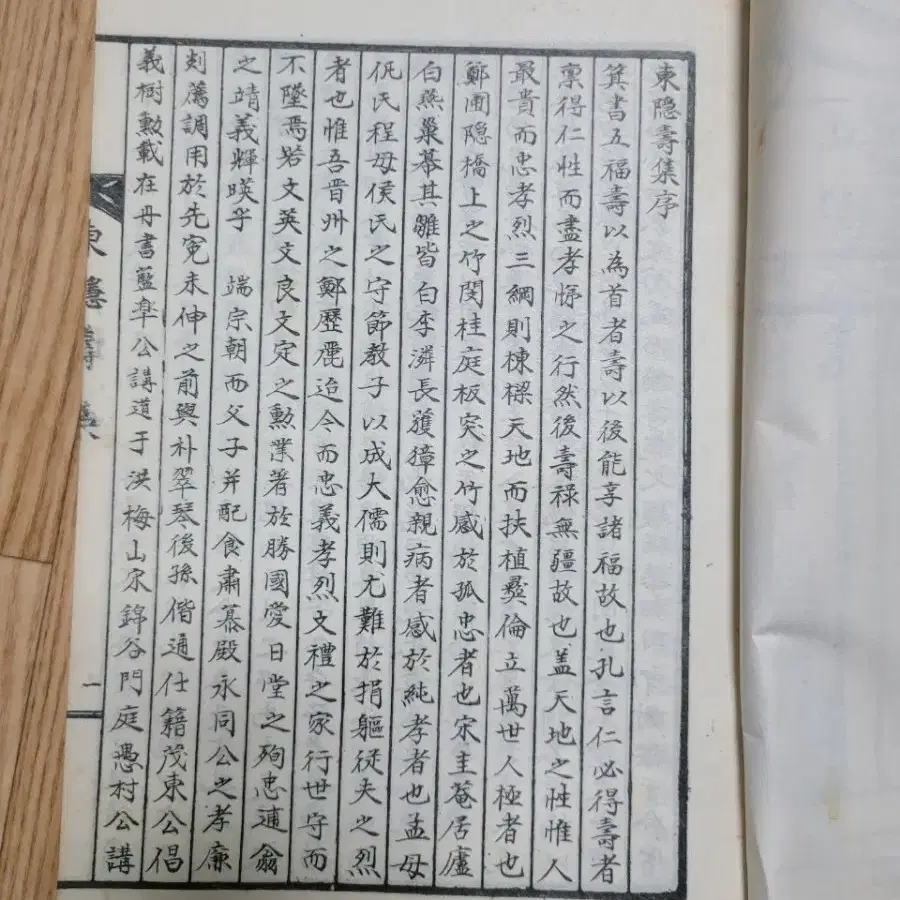 東隐壽集序
箕書五福壽以為首者壽以後能享諸福故也孔言仁必得壽者
禀得仁性而盡孝悌之行然後壽祿無疆故也盖天地之性惟人
最貴而忠孝烈三綱則棟樑天地而扶植彛倫立萬世人極者也
鄭圃隐橋上之竹閔桂庭板突之竹感於孤忠者也宋圭菴居廬
白燕巢其雛皆白李潾長獲獐愈親病者感於純孝者也孟母
仉氏程母侯氏之守節教子以成大儒則尤難於捐軀從夫之烈
者也惟吾晋州之鄭歷麗迨今而忠義孝烈文禮之家行世守而
不墜焉若文英文良文定之勲業著於勝國愛日堂之殉忠逋翁
之靖義輝暎乎 端宗朝而父子并配食肅慕殿永同公之孝廉
剡薦調用於先寃未伸之前與朴翠琴後孫偕通仕籍茂東公倡
義樹勲載在丹書藍㙜公講道于洪梅山宋錦谷門庭愚村公講
東隱壽集
一